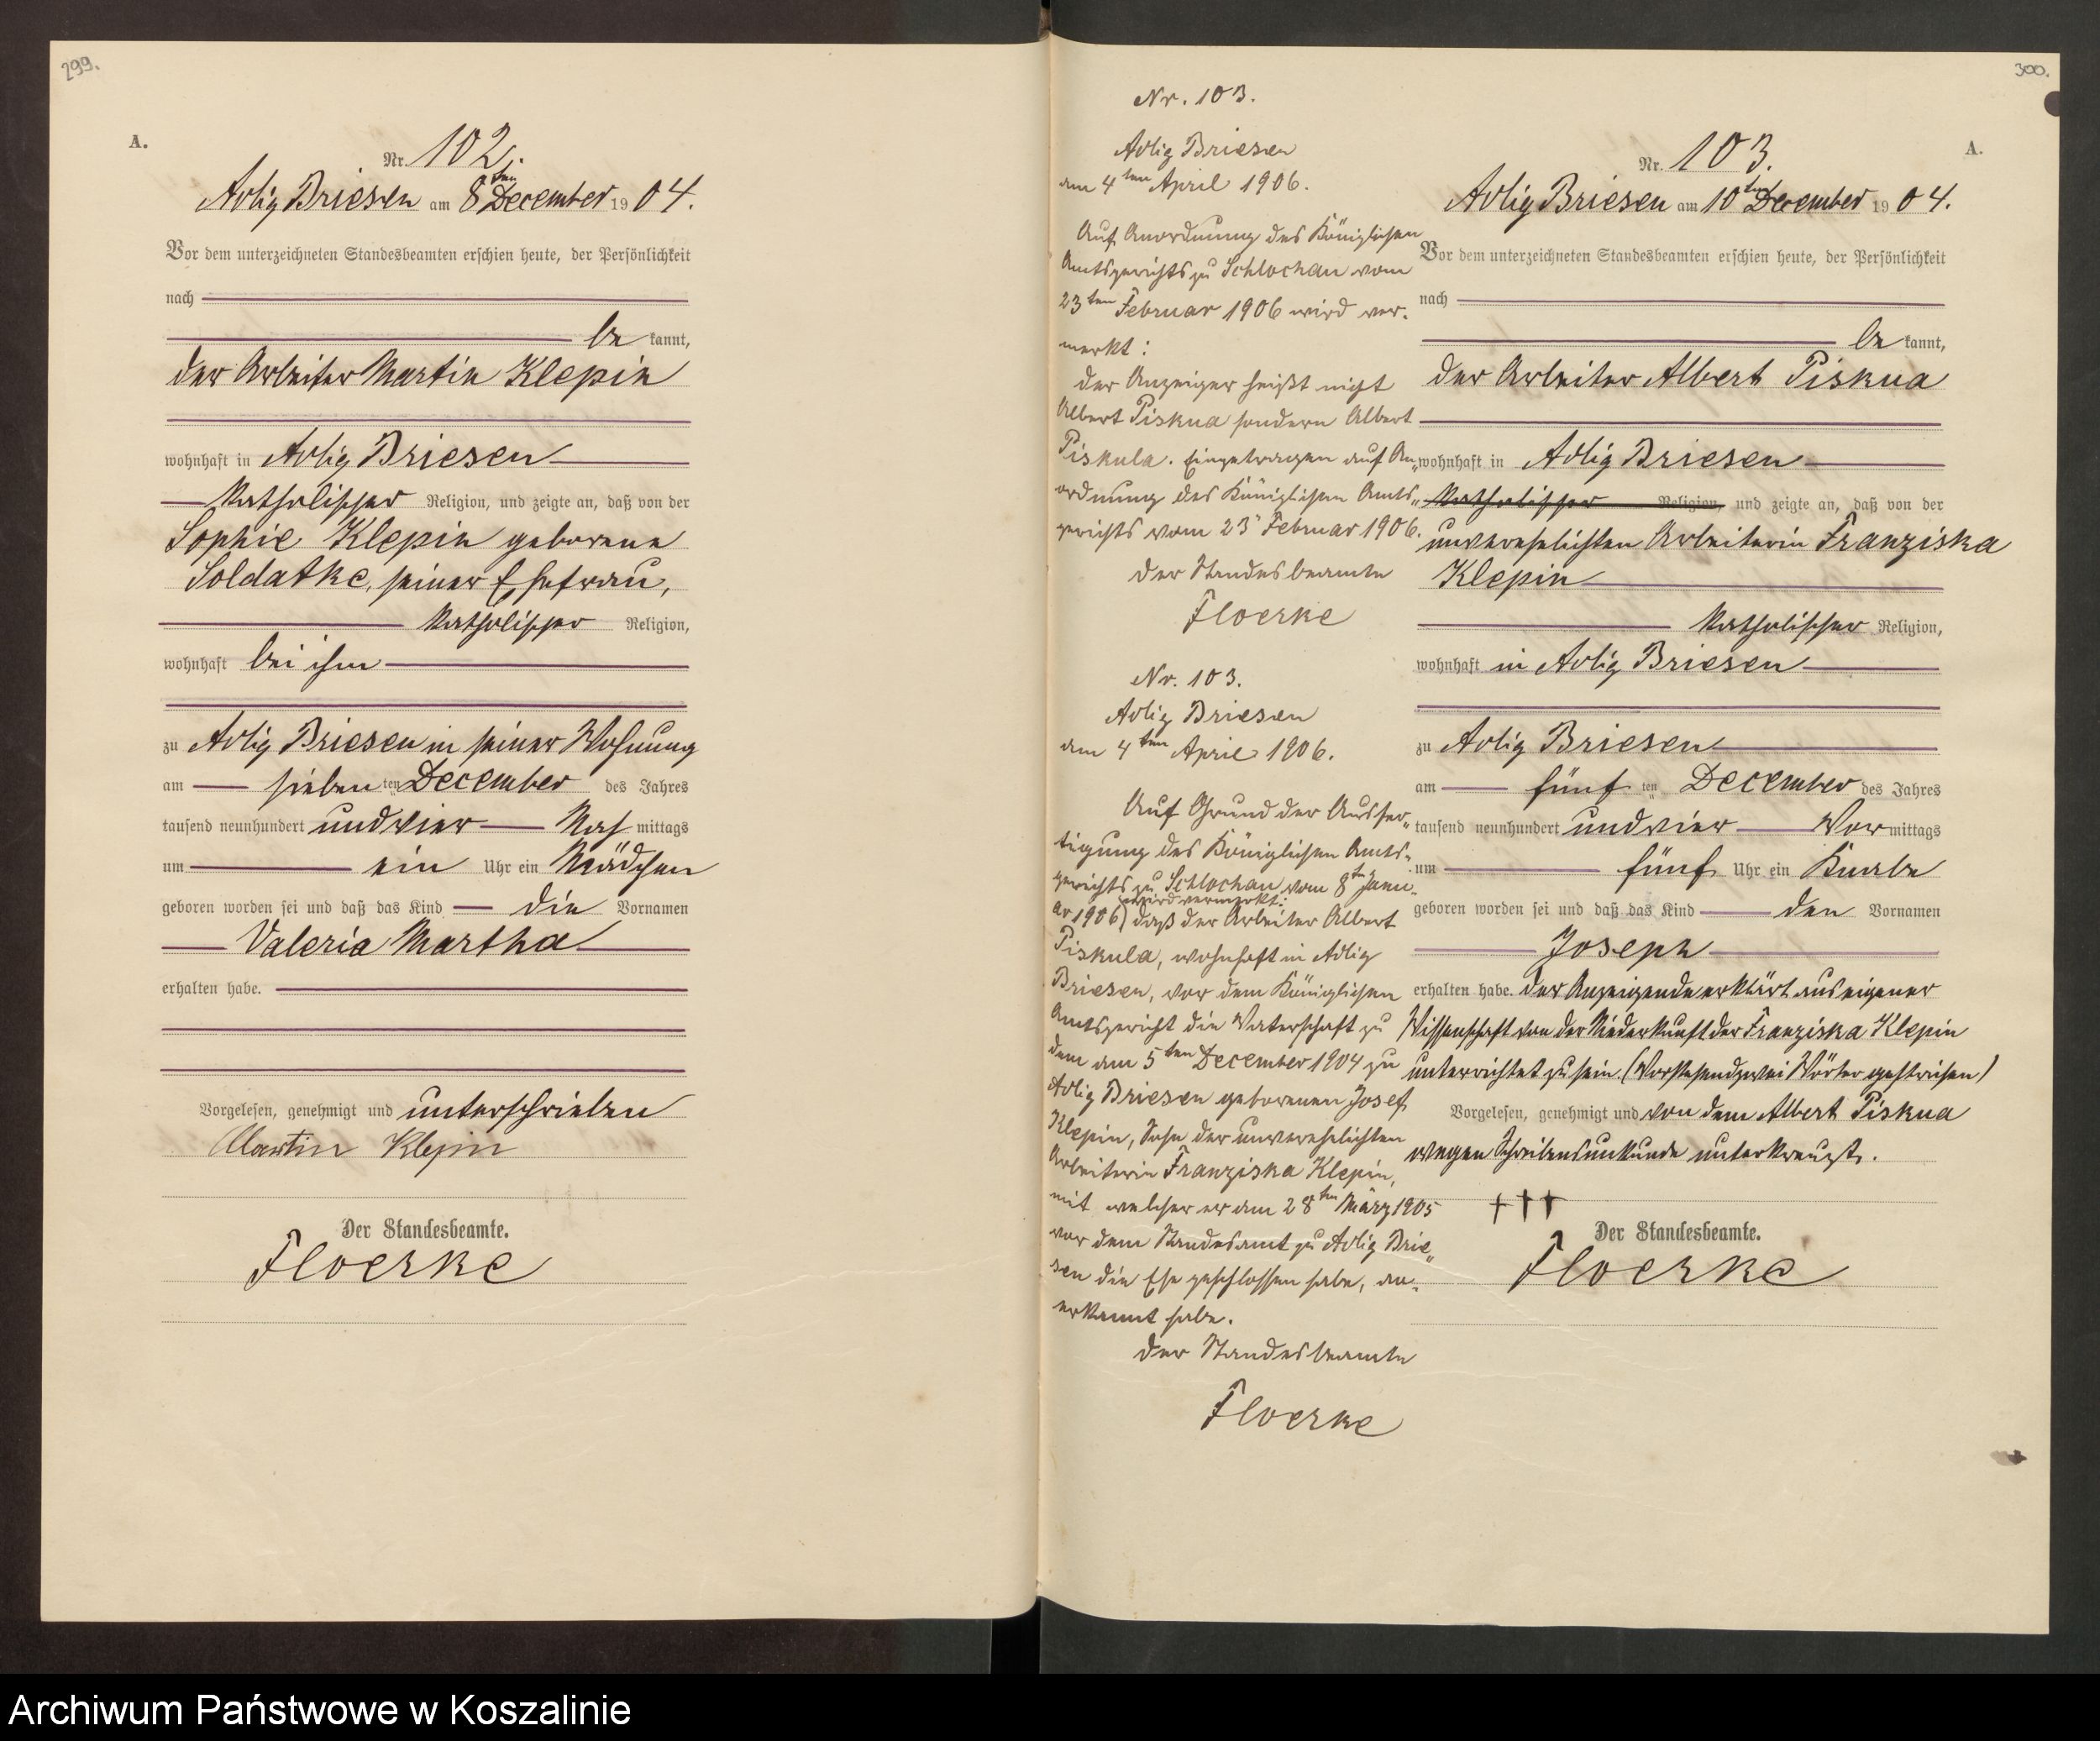 299.
A.
Nr. 102.
Adlig Briesen am 8ten December 1904.
Vor dem unterzeichneten Standesbeamten erschien heute, der Persönlichkeit
nach
be kannt,
der Arbeiter Martin Klepin
wohnhaft in Adlig Briesen
katholischer Religion, und zeigte an, daß von der
Sophie Klepin geborene
Soldatke, seiner Ehefrau,
katholischer Religion,
wohnhaft bei ihm
zu Adlig Briesen in seiner Wohnung
am sieben ten December des Jahres
tausend neunhundert und vier Nach mittags
um ein Uhr ein Mädchen
geboren worden sei und daß das Kind die Vornamen
Valeria Martha
erhalten habe.
Vorgelesen, genehmigt und unterschrieben
Martin Klepin
Der Standesbeamte.
Floerke
300.
Nr. 103.
Adlig Briesen
am 4ten April 1906.
Auf Anordnung des Königlichen
Amtsgerichts zu Schlochau vom
23ten Februar 1906 wird ver-
merkt:
Der Anzeiger heißt nicht
Albert Piskua sondern Albert
Piskula. Eingetragen auf An-
ordnung des Königlichen Amts-
gerichts vom 23" Februar 1906.
Der Standesbeamte
Floerke
Nr. 103.
Adlig Briesen
am 4ten April 1906.
Auf Grund der Ausfer-
tigung des Königlichen Amts-
gerichts zu Schlochau vom 8ten Janu-
wird vermerkt:
ar 1906) daß der Arbeiter Albert
Piskula, wohnhaft in Adlig
Briesen, vor dem Königlichen
Amtsgericht die Vaterschaft zu
dem am 5ten December 1904 zu
Adlig Briesen geborenen Josef
Klepin, Sohn der unverehelichten
Arbeiterin Franziska Klepin,
mit welcher er am 28ten März 1905
vor dem Standesamt zu Adlig Brie-
sen die Ehe geschlossen habe, an-
erkannt habe.
Der Standesbeamte
Floerke
A.
Nr. 103.
Adlig Briesen am 10ten December 1904.
Vor dem unterzeichneten Standesbeamten erschien heute, der Persönlichkeit
nach
be kannt,
der Arbeiter Albert Piskua
wohnhaft in Adlig Briesen
katholischer Religion, und zeigte an, daß von der
unverehelichten Arbeiterin Franziska
Klepin
katholischer Religion,
wohnhaft in Adlig Briesen
zu Adlig Briesen
am fünf ten December des Jahres
tausend neunhundert und vier Vor mittags
um fünf Uhr ein Knabe
geboren worden sei und daß das Kind den Vornamen
Joseph
erhalten habe. Der Anzeigende erklärt aus eigener
Wissenschaft von der Niederkunft der Franziska Klepin
unterrichtet zu sein. (Vorstehend zwei Wörter gestrichen)
Vorgelesen, genehmigt und von dem Albert Piskua
wegen Schreibensunkunde unterkreuzt.
+++
Der Standesbeamte.
Floerke
Archiwum Państwowe w Koszalinie